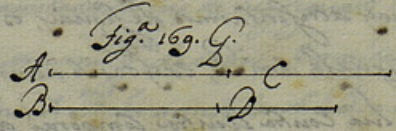 Fig.ª 169. G.
A C
B D